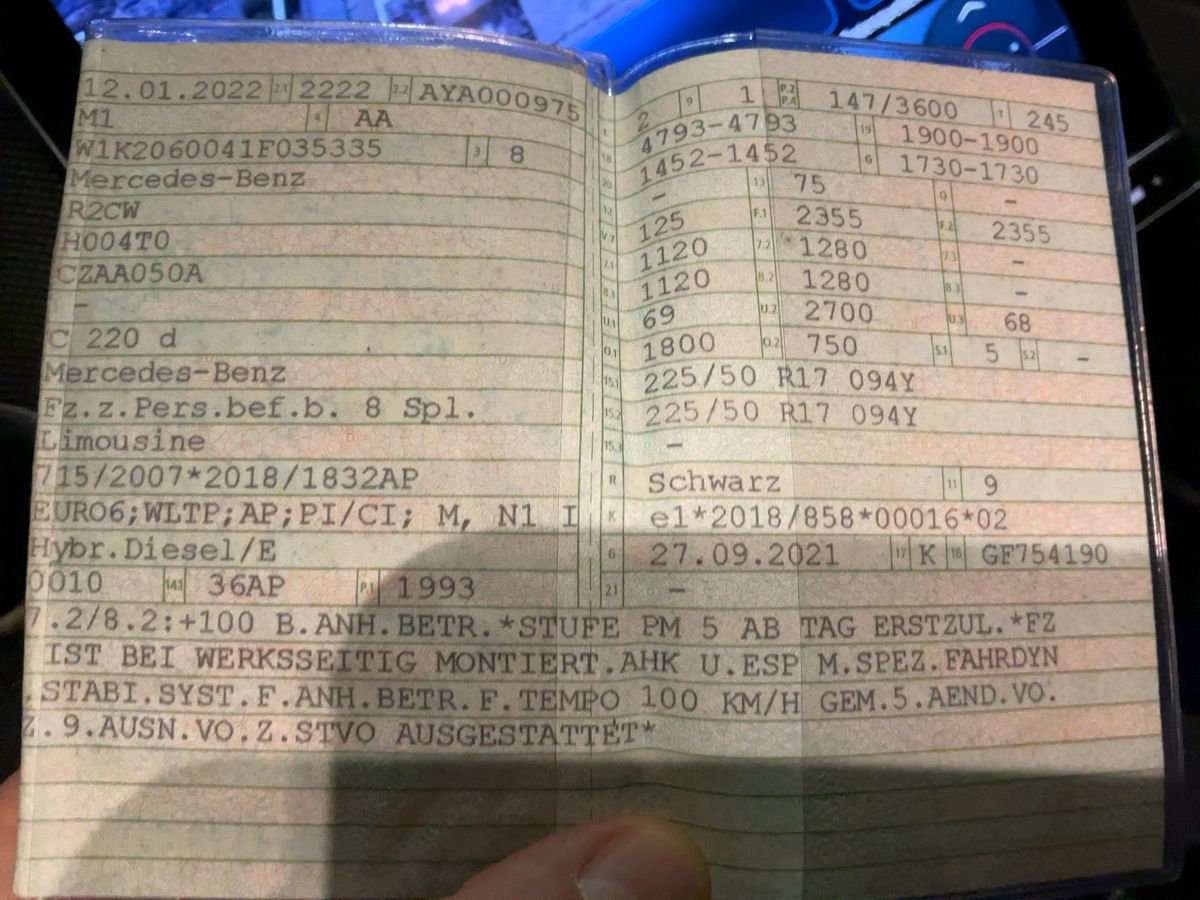 12.01.2022 2.1 2222 2.2 AYA000975
M1 4 AA
W1K2060041F035335 3 8
Mercedes-Benz
R2CW
H004T0
CZAA050A
-
C 220 d
Mercedes-Benz
Fz.z.Pers.bef.b. 8 Spl.
Limousine
715/2007*2018/1832AP
EURO6;WLTP;AP;PI/CI; M, N1 I
Hybr.Diesel/E
0010 14.1 36AP P.1 1993
L 2 9 1 P.2 P.4 147/3600 T 245
18 4793-4793 19 1900-1900
20 1452-1452 G 1730-1730
12 - 13 75 Q -
V.7 125 F.1 2355 F.2 2355
7.1 1120 7.2 1280 7.3 -
8.1 1120 8.2 1280 8.3 -
U.1 69 U.2 2700 U.3 68
O.1 1800 O.2 750 S.1 5 S.2 -
15.1 225/50 R17 094Y
15.2 225/50 R17 094Y
15.3 -
R Schwarz 11 9
K e1*2018/858*00016*02
6 27.09.2021 17 K 16 GF754190
21 -
7.2/8.2:+100 B.ANH.BETR.*STUFE PM 5 AB TAG ERSTZUL.*FZ
IST BEI WERKSSEITIG MONTIERT.AHK U.ESP M.SPEZ.FAHRDYN
.STABI.SYST.F.ANH.BETR.F.TEMPO 100 KM/H GEM.5.AEND.VO.
Z.9.AUSN.VO.Z.STVO AUSGESTATTET*